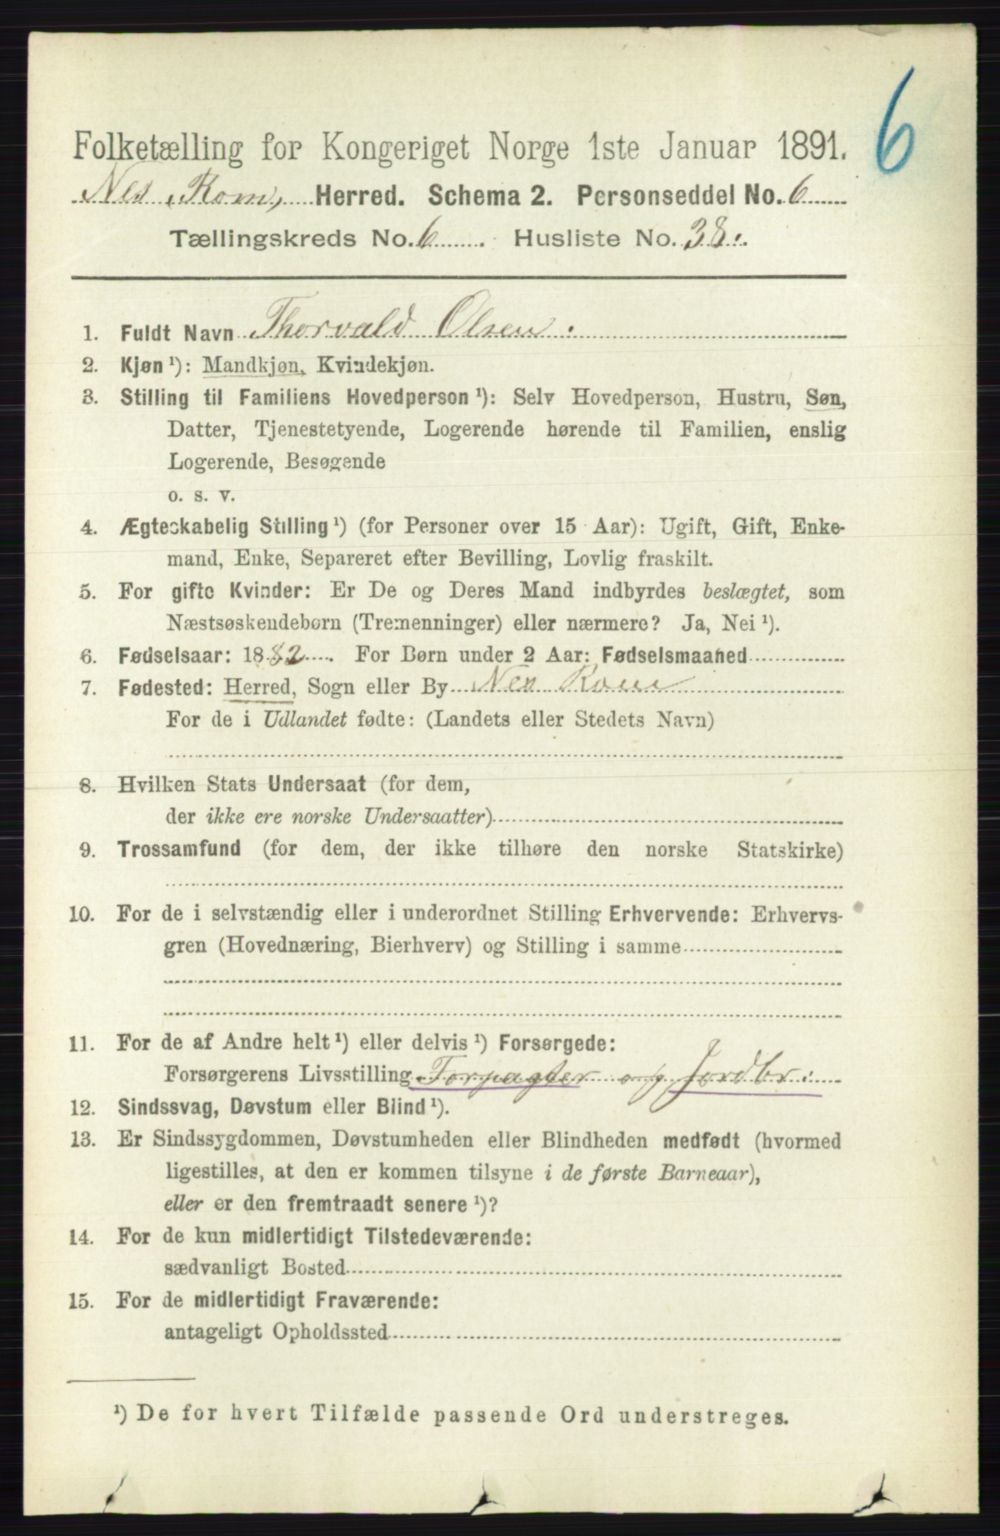 6
Folketælling for Kongeriget Norge 1ste Januar 1891.
Nes, Rom, Herred. Schema 2. Personseddel No. 6
Tællingskreds No. 6. Husliste No. 38.
1. Fuldt Navn Thorvald Olsen.
2. Kjøn ¹): Mandkjøn, Kvindekjøn.
3. Stilling til Familiens Hovedperson ¹): Selv Hovedperson, Hustru, Søn,
Datter, Tjenestetyende, Logerende hørende til Familien, enslig
Logerende, Besøgende
o. s. v.
4. Ægteskabelig Stilling ¹) (for Personer over 15 Aar): Ugift, Gift, Enke-
mand, Enke, Separeret efter Bevilling, Lovlig fraskilt.
5. For gifte Kvinder: Er De og Deres Mand indbyrdes beslægtet, som
Næstsøskendebørn (Tremenninger) eller nærmere? Ja, Nei ¹).
6. Fødselsaar: 1882. For Børn under 2 Aar: Fødselsmaaned
7. Fødested: Herred, Sogn eller By Nes Rom
For de i Udlandet fødte: (Landets eller Stedets Navn)
8. Hvilken Stats Undersaat (for dem,
der ikke ere norske Undersaatter)
9. Trossamfund (for dem, der ikke tilhøre den norske Statskirke)
10. For de i selvstændig eller i underordnet Stilling Erhvervende: Erhvervs-
gren (Hovednæring, Bierhverv) og Stilling i samme
11. For de af Andre helt ¹) eller delvis ¹) Forsørgede:
Forsørgerens Livsstilling Forpagter og Jordbr.
12. Sindssvag, Døvstum eller Blind ¹).
13. Er Sindssygdommen, Døvstumheden eller Blindheden medfødt (hvormed
ligestilles, at den er kommen tilsyne i de første Barneaar),
eller er den fremtraadt senere ¹)?
14. For de kun midlertidigt Tilstedeværende:
sædvanligt Bosted
15. For de midlertidigt Fraværende:
antageligt Opholdssted
¹) De for hvert Tilfælde passende Ord understreges.